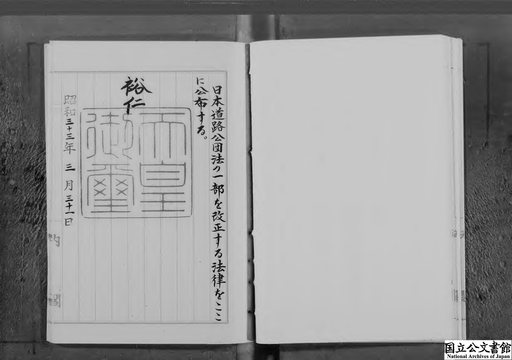 日本道路公団法の一部を改正する法律をここ
に公布する。
裕仁
天皇
御璽
昭和三十三年三月三十一日
国立公文書館
National Archives of Japan